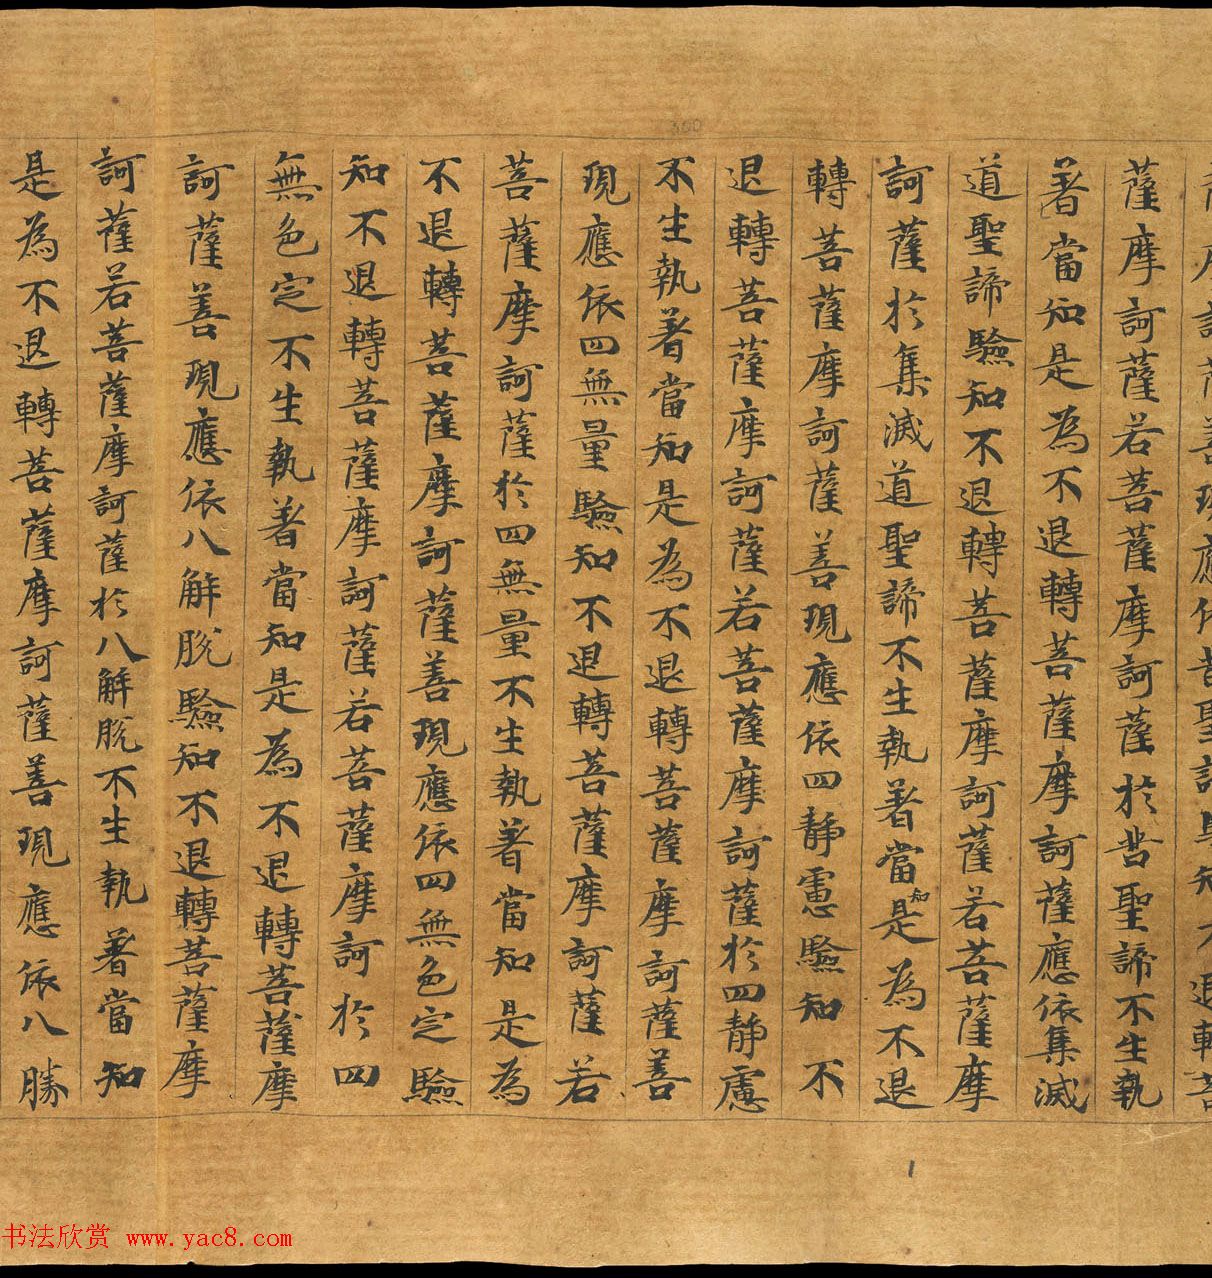 訶薩善現應依苦聖諦驗知不退轉菩
薩摩訶薩若菩薩摩訶薩於苦聖諦不生執
著當知是為不退轉菩薩摩訶薩應依集滅
道聖諦驗知不退轉菩薩摩訶薩若菩薩摩
訶薩於集滅道聖諦不生執著當知是為不退
轉菩薩摩訶薩善現應依四靜慮驗知不
退轉菩薩摩訶薩若菩薩摩訶薩於四靜慮
不生執著當知是為不退轉菩薩摩訶薩善
現應依四無量驗知不退轉菩薩摩訶薩若
菩薩摩訶薩於四無量不生執著當知是為
不退轉菩薩摩訶薩善現應依四無色定驗
知不退轉菩薩摩訶薩若菩薩摩訶於四
無色定不生執著當知是為不退轉菩薩摩
訶薩善現應依八解脫驗知不退轉菩薩摩
訶薩若菩薩摩訶薩於八解脫不生執著當知
是為不退轉菩薩摩訶薩善現應依八勝
1
书法欣赏 www.yac8.com